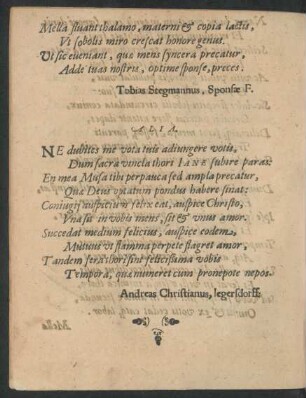 Mella fluant thalamo, materni & copia lactis,
Vt sobolis miro crescat honore genus.
Vt sic eveniant, quæ mens syncera precatur,
Adde tuas nostris, optime sponse, preces.
Tobias Stegmannus, Sponsæ F.
ALIA.
NE dubites me vota tuis adiungere votis,
Dum sacra vincla thori IANE subire paras:
En mea Musa tibi perpauca sed ampla precatur,
Quæ Deus optatum pondus habere sinat:
Coniugij auspicium felix eat, auspice Christo,
Vna sit in vobis mens, sit & vnus amor.
Succedat medium felicius, auspice eodem,
Mutuus vt flamma perpete flagret amor,
Tandem fera thori sint felicissima vobis
Tempora, quæ muneret cum pronepote nepos.
Andreas Christianus, Iegersdorff.
Mella